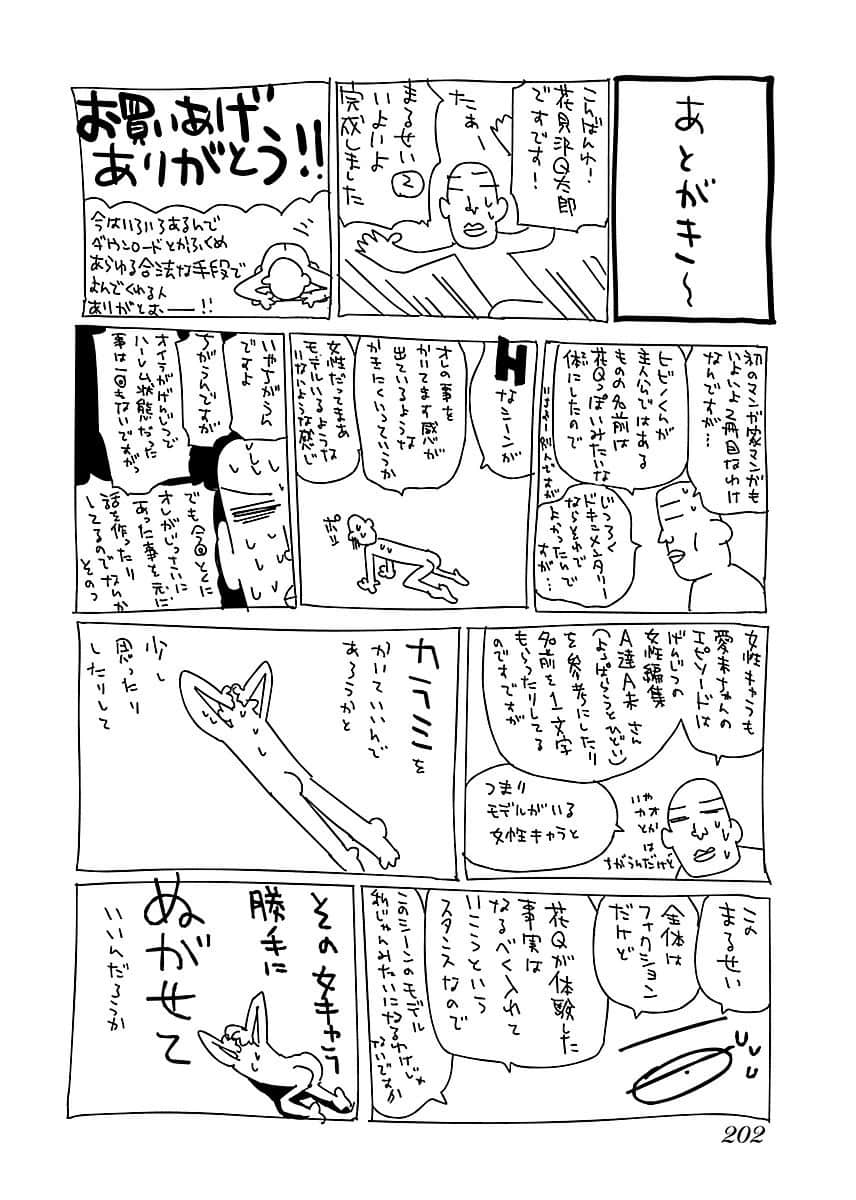 あとがき～
こんばんわ！
花見沢Q太郎
ですです！
たぁー
まるせい②
いよいよ
完成しました
お買いあげ
ありがとう!!
今はいろいろあるんで
ダウンロードとかふくめ
あらゆる合法な手段で
よんでくれる人
ありがとぉ――!!
初のマンガ家マンガも
いよいよ2冊目なわけ
なんですが…
ヒビノくんが
主人公ではある
ものの名前は
花Qっぽいみたいな
体にしたので
じつろく
ドキュメンタリー
ならそれで
よかったんで
すが…
Hなシーンが
オレの事を
かいてます感が
出ているような
かきたくいっていうか
女性だってまあ
モデルいるような
いないような感じ
ポッ
いやちがうん
ですよ
ちがうんですが
オイラがげんじつで
ハーレム状態だった
事は一回もないですがっ
でも今回とくに
オレがじっさいに
あった事を元に
話を作ったり
してるのでなんか
そのっ
女性キャラも
愛未ちゃんの
エピソードは
げんじつの
女性編集
A達A未さん
（よっぱらうとひどい）
を参考にしたり
名前を1文字
もらったりしてる
のですですが
いや
カオ
とかは
ちがうんだけど
つまり
モデルがいる
女性キャラと
カラミを
かいていいんで
あろうかと
少し
思ったり
したりして
この
まるせい
全体は
フィクション
だけど
花Qが体験した
事実は
なるべく入れて
いこうという
スタンスなので
このシーンのモデル
私じゃんみたいになるわけじゃ
ないですか
その女キャラ
勝手に
ぬがせて
いいんだろうか
202